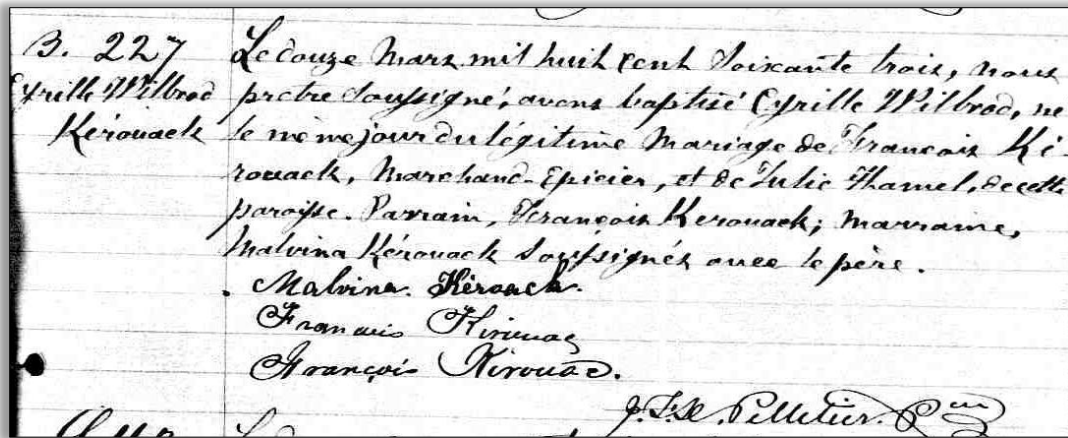 B. 227
Cyrille Wilbrod
Kérouack
Le douze Mars mil huit cent soixante trois, nous
prètre soussigné, avons baptisé Cyrille Wilbrod, né
le même jour du légitime mariage de François Ké-
rouack, Marchand-Epicier, et de Julie Hamel, de cette
paroisse. Parrain, François Kerouack; marraine,
Malvina Kérouack soussignés avec le père.
Malvina Kérouack.
François Kirouac
François Kirouac.
Pelletier.